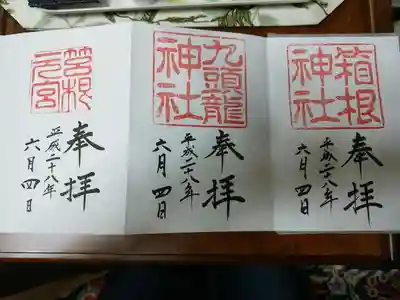 箱根
神社
奉拝
平成二十八年
六月四日
九頭龍
神社
奉拝
平成二十八年
六月四日
箱根
元宮
奉拝
平成二十八年
六月四日